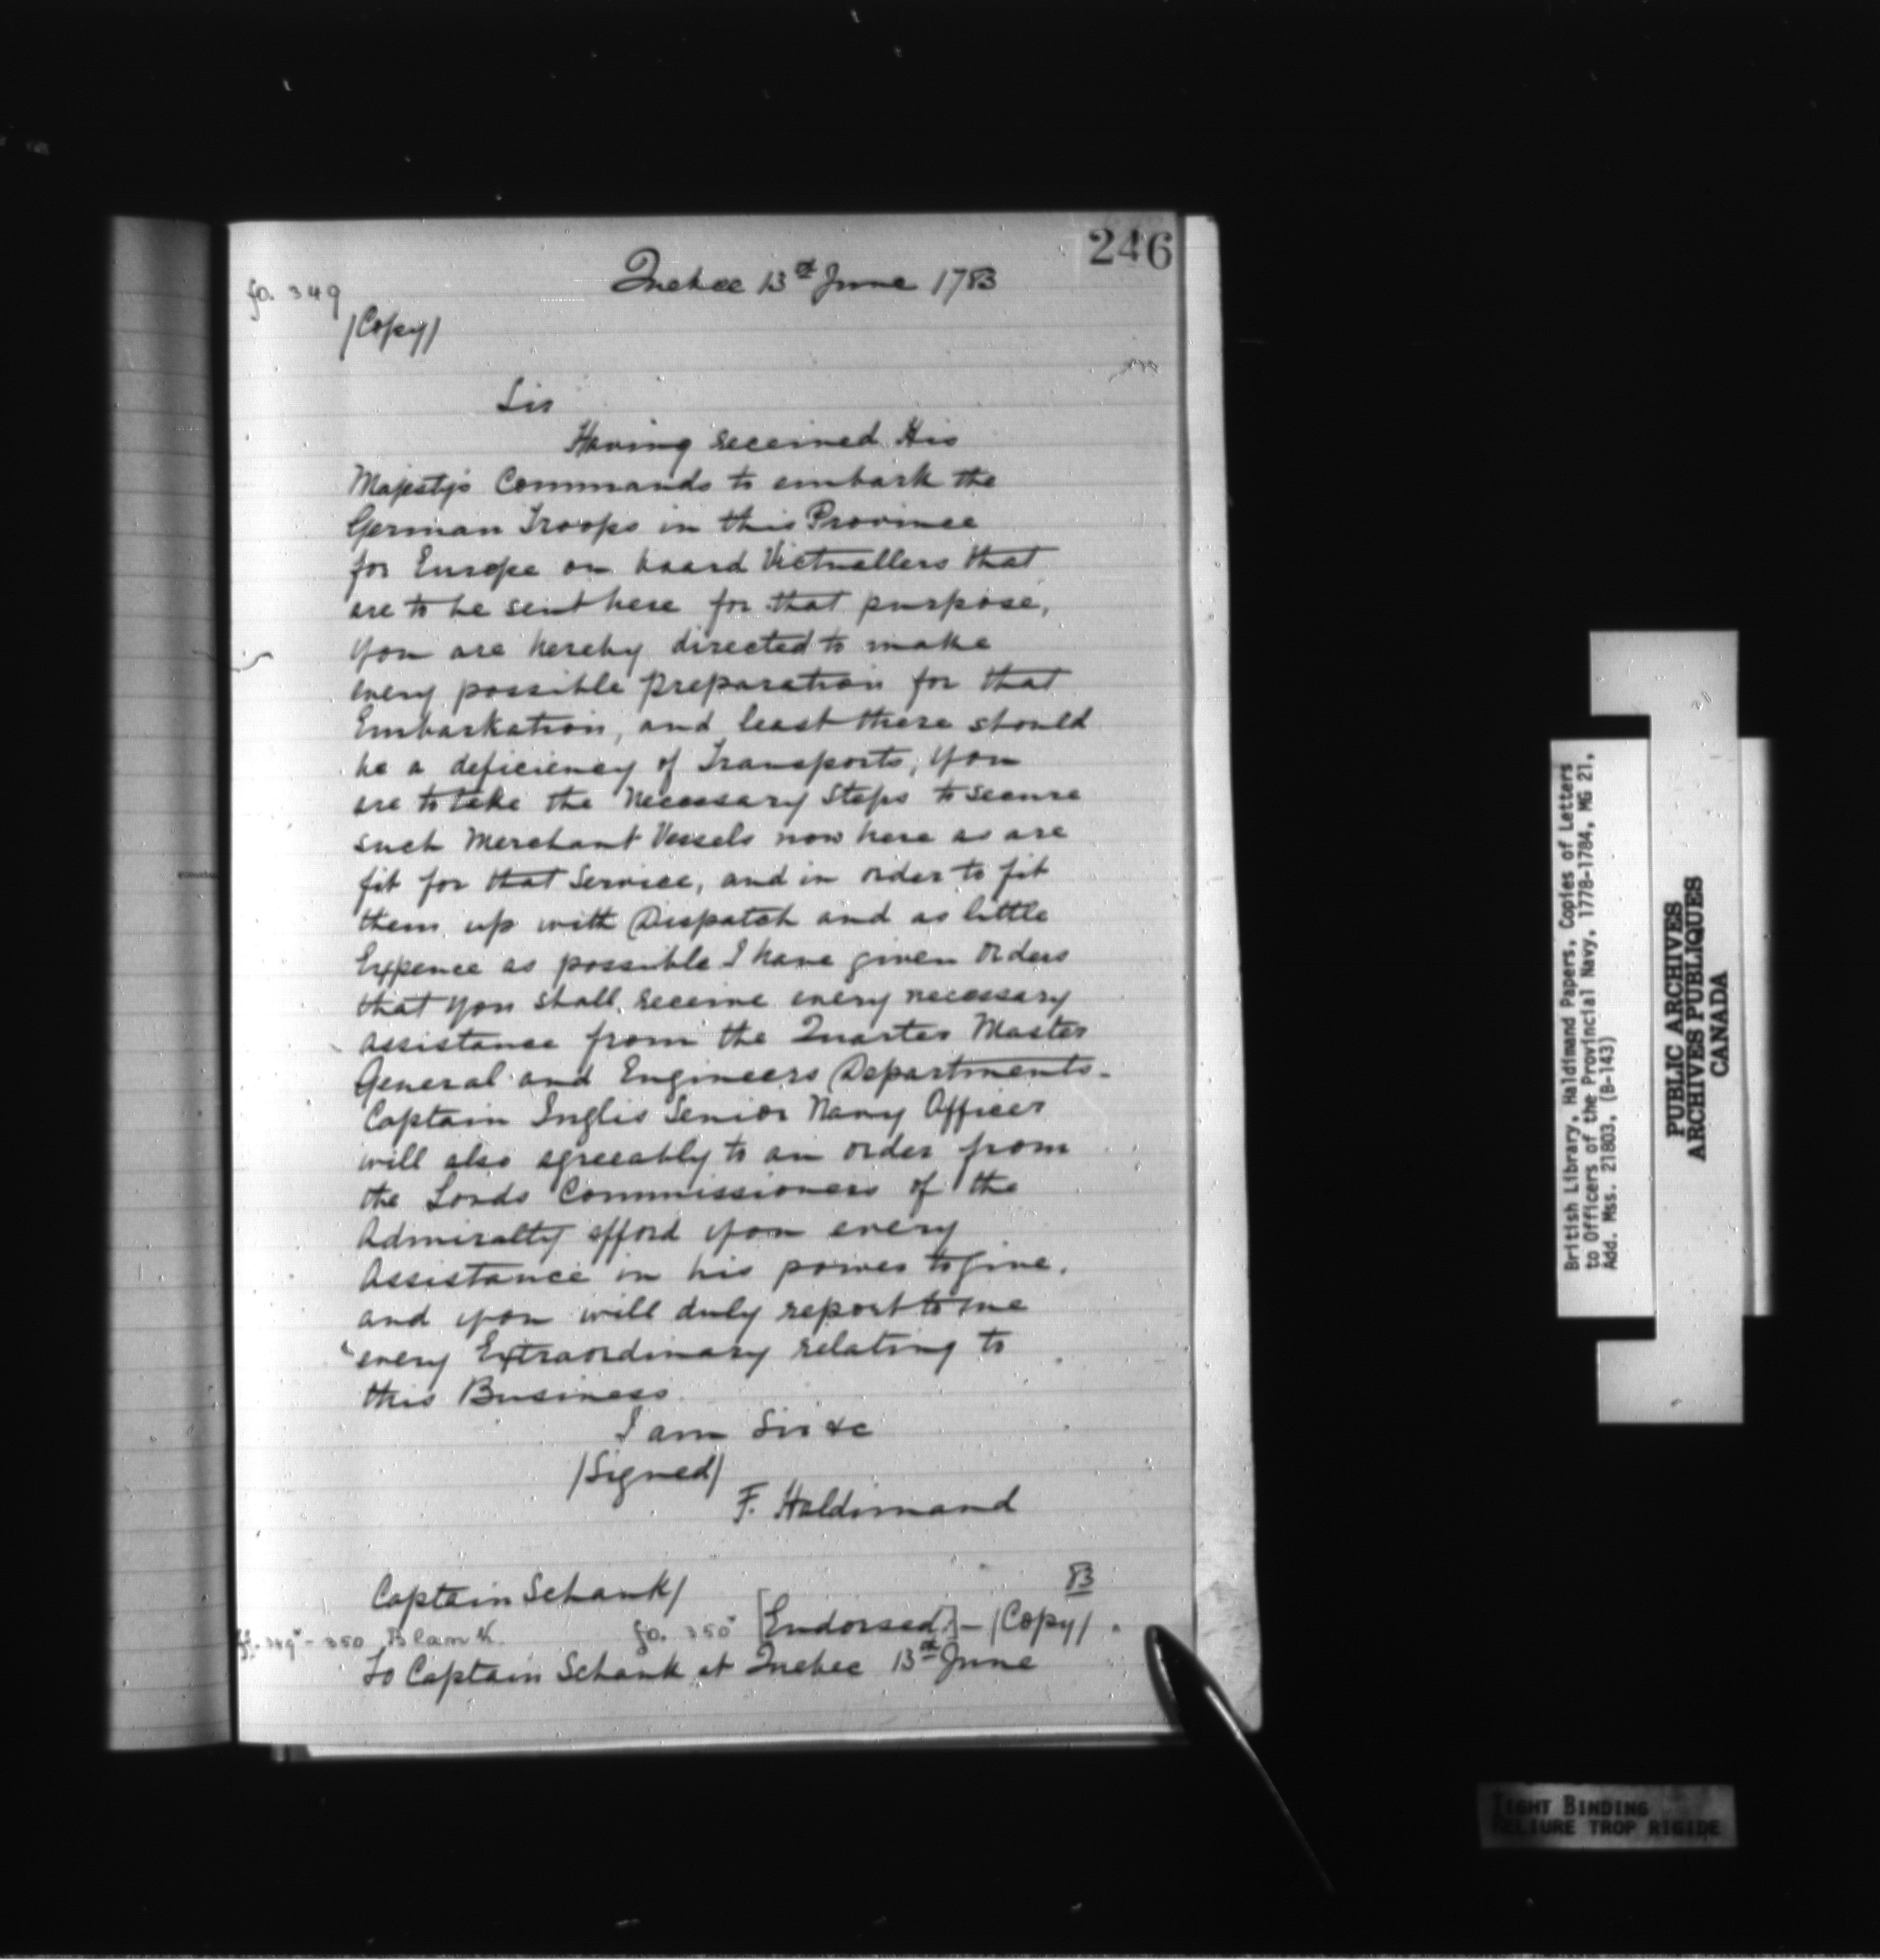 246
Quebec 13th June 1783
fo. 349
/Copy/
Sir
Having received His
Majesty's Commands to embark the
German Troops in this Province
for Europe on board Victuallers that
are to be sent here for that purpose,
You are hereby directed to make
every possible preparation for that
Embarkation, and least there should
be a deficiency of Transports, You
are to take the necessary Steps to secure
such Merchant Vessels now here as are
fit for that Service, and in order to fit
them up with Dispatch and as little
Expence as possible I have given Orders
that you shall receive every necessary
assistance from the Quarter Master
General and Engineers Departments.
Captain Inglis Senior Navy Officer
will also agreeably to an order from
the Lords Commissioners of the
Admiralty afford you every
Assistance in his power to give.
and you will duly report to me
every Extraordinary relating to
this Business.
I am Sir &c
/Signed/
F. Haldimand
B
Captain Schank/
ff. 349v - 350 Blank. fo. 350v [Endorsed] - /Copy/.
To Captain Schank at Quebec 13th June
British Library, Haldimand Papers, Copies of Letters
to Officers of the Provincial Navy, 1778-1784, MG 21,
Add. Mss. 21803, (B-143)
PUBLIC ARCHIVES
ARCHIVES PUBLIQUES
CANADA
TIGHT BINDING
RELIURE TROP RIGIDE